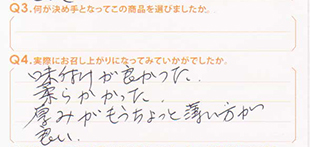 Q3.何が決め手となってこの商品を選びましたか。
Q4.実際にお召し上がりになってみていかがでしたか。
味付けが良かった.
柔らかかった.
厚みがもうちょっと薄い方が
良い.